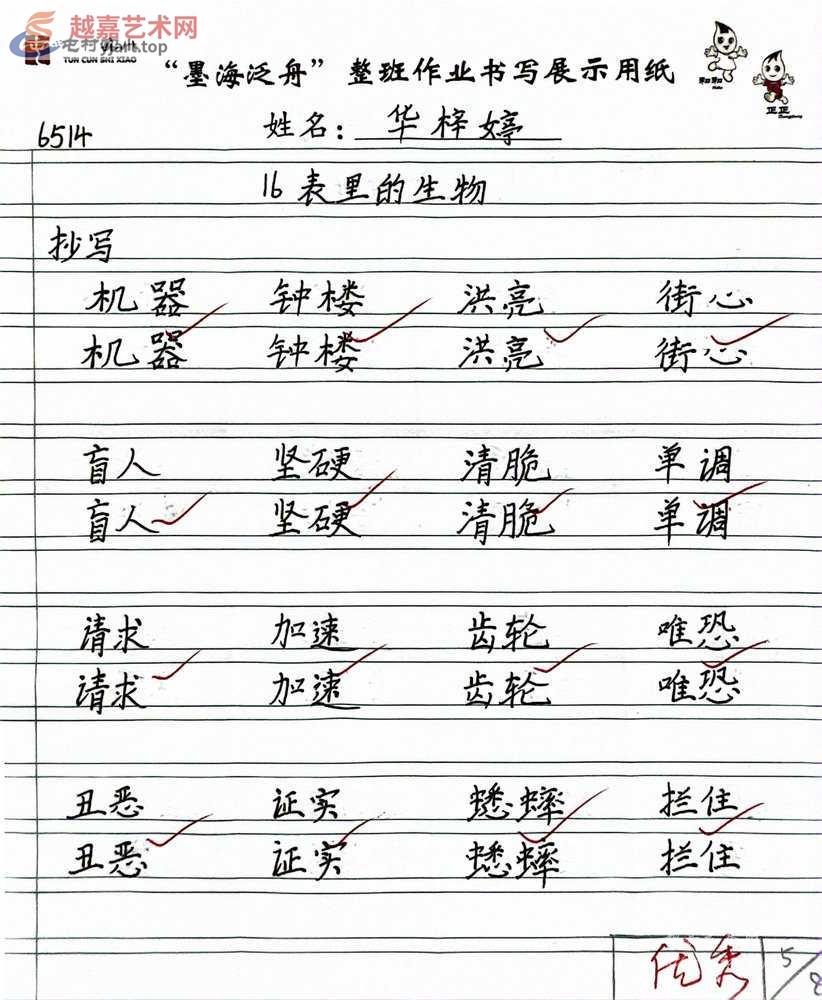 越嘉艺术网
yjart.top
TUN CUN SHI XIAO
“墨海泛舟”整班作业书写展示用纸
和和
正正
6514 姓名：华梓婷
16 表里的生物
抄写
机器 钟楼 洪亮 街心
机器 钟楼 洪亮 街心
盲人 坚硬 清脆 单调
盲人 坚硬 清脆 单调
请求 加速 齿轮 唯恐
请求 加速 齿轮 唯恐
丑恶 证实 蟋蟀 拦住
丑恶 证实 蟋蟀 拦住
优秀 5/8